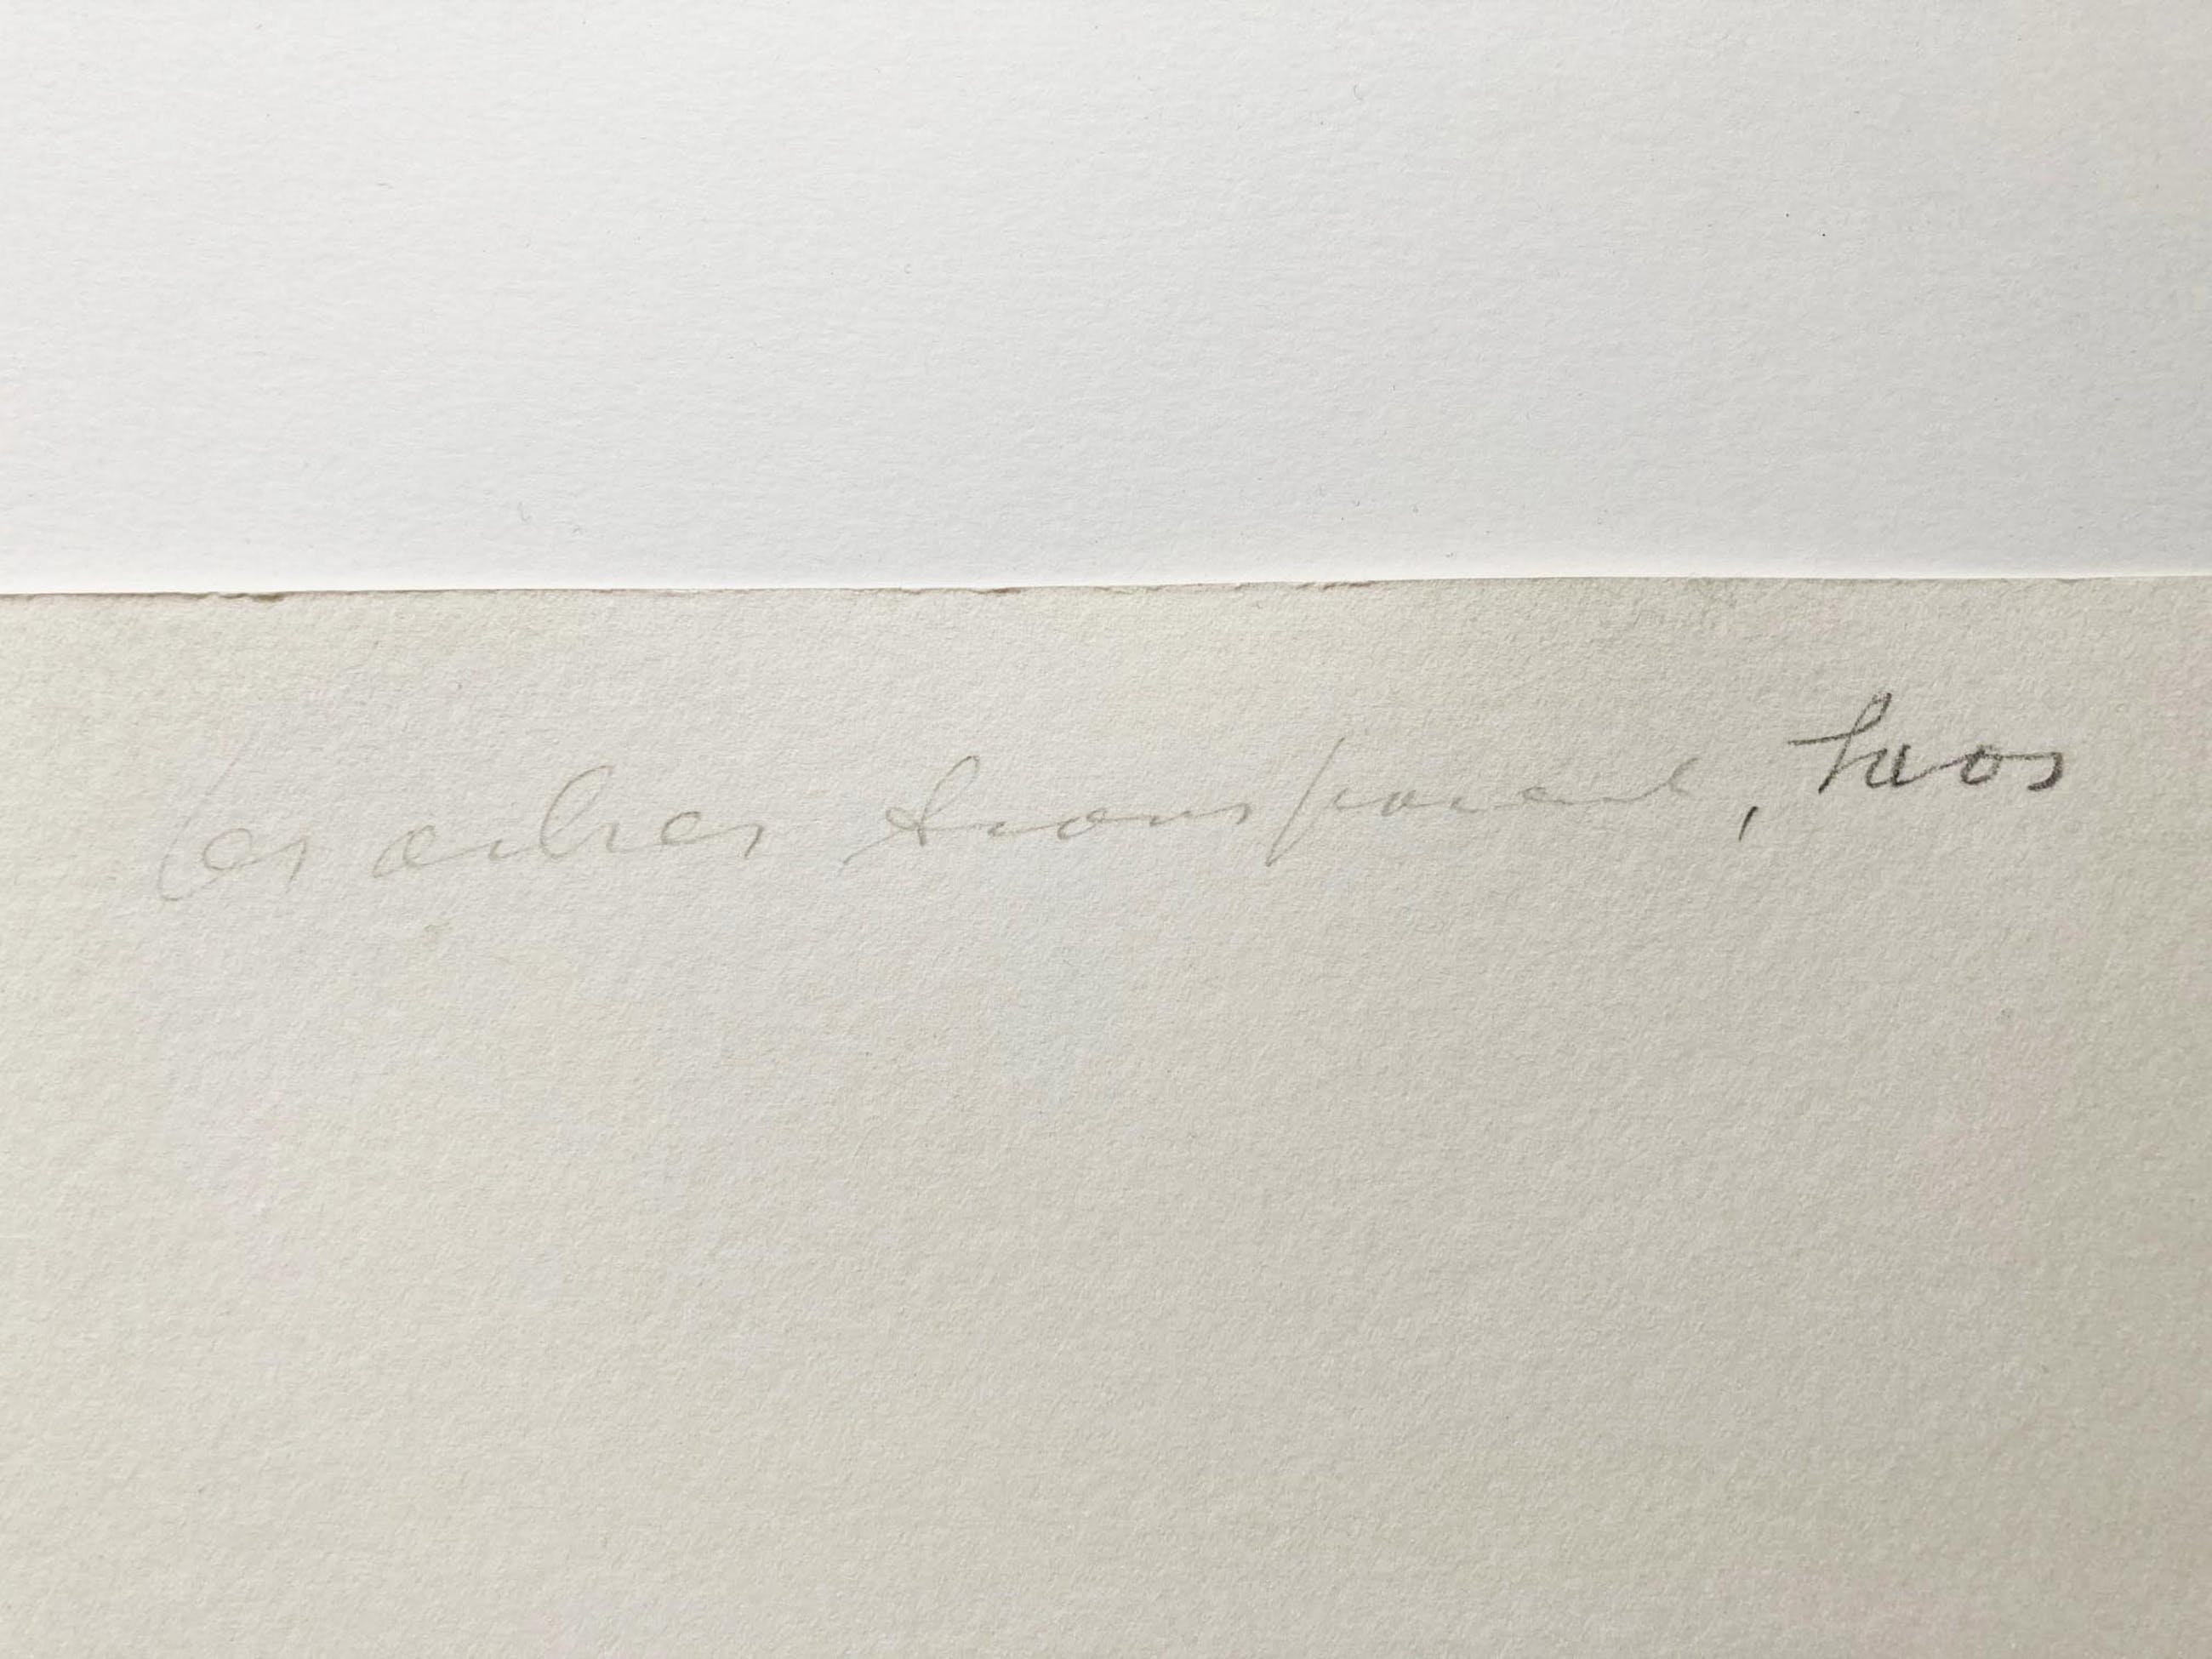 les arbres transparent, Laos